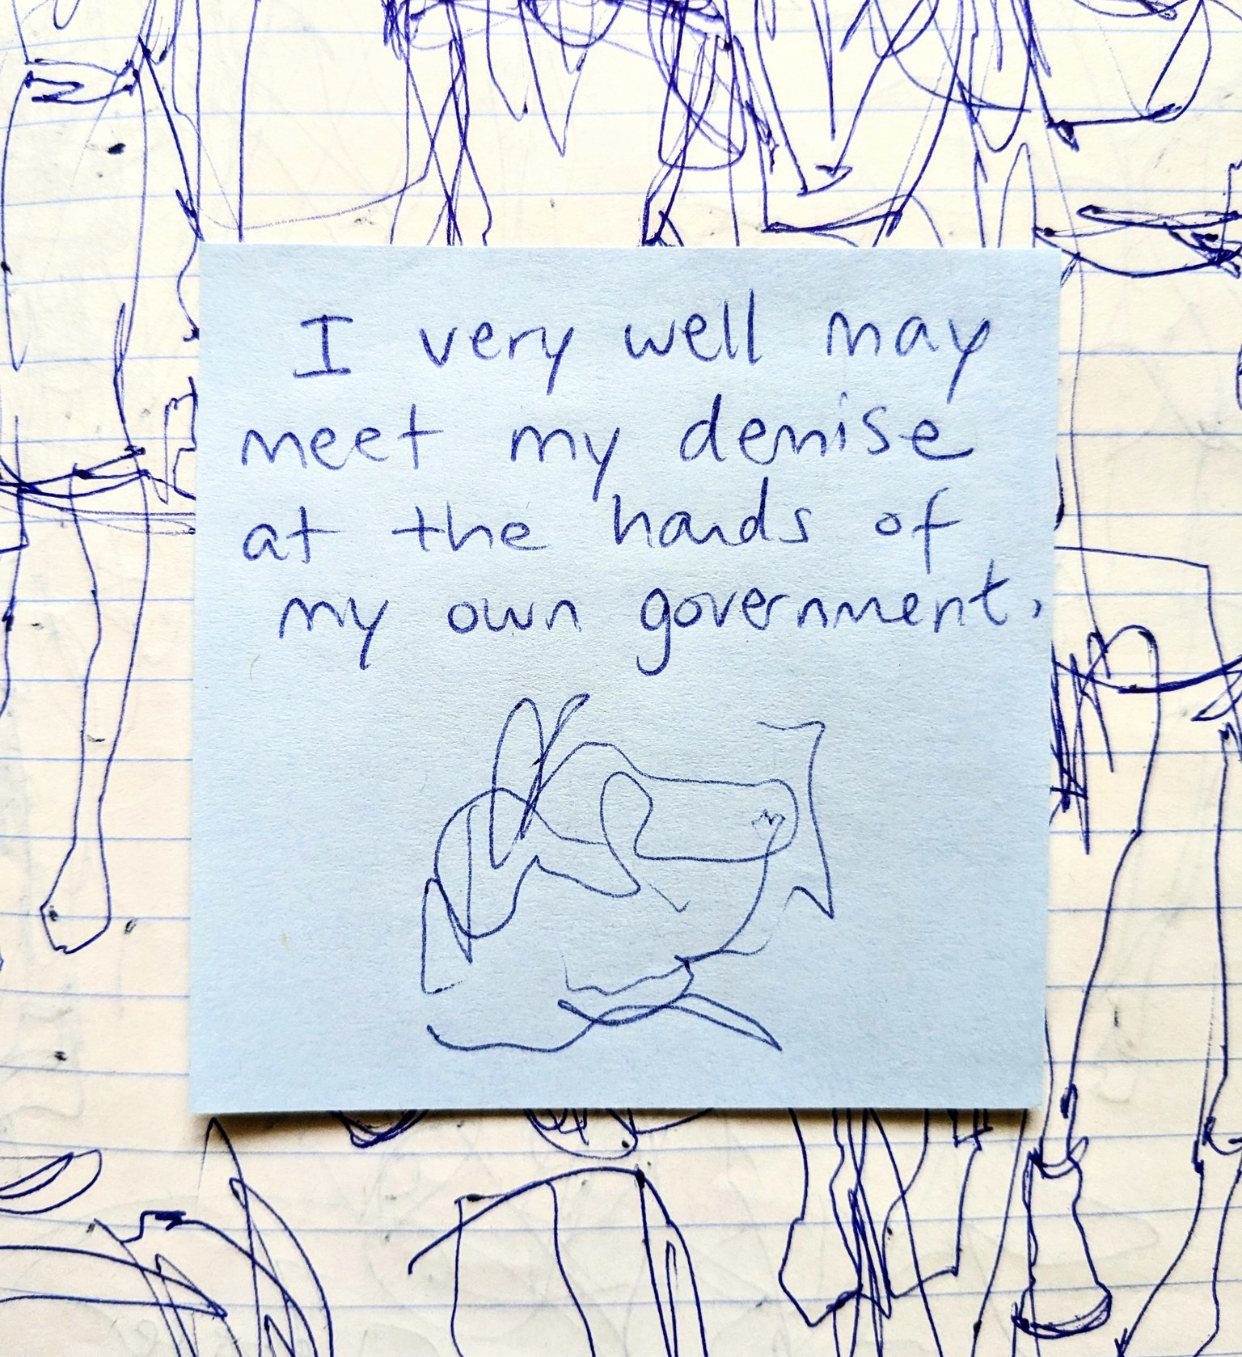 I very well may
meet my demise
at the hands of
my own government.